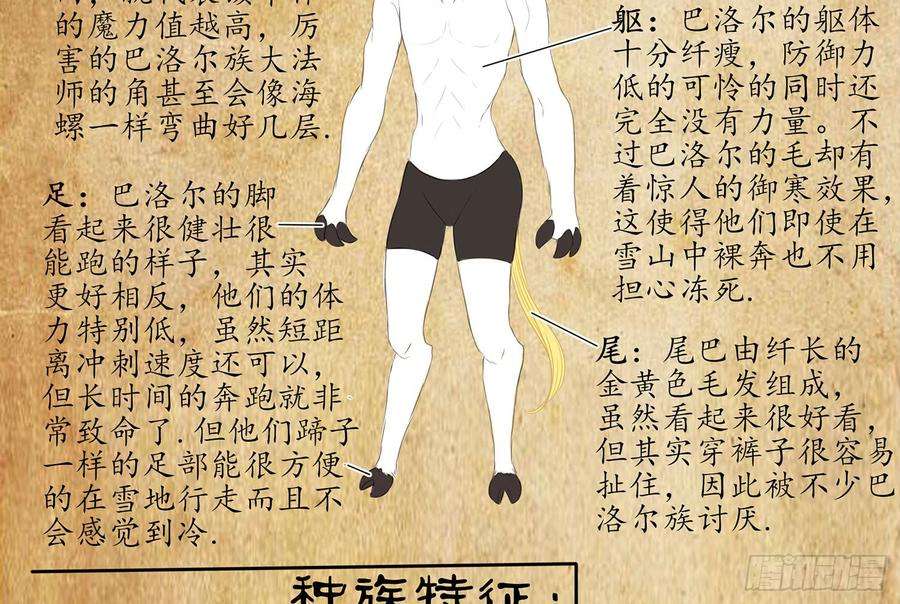 的魔力值越高，厉
害的巴洛尔族大法
师的角甚至会像海
螺一样弯曲好几层.
足：巴洛尔的脚
看起来很健壮很
能跑的样子，其实
更好相反，他们的体
力特别低，虽然短距
离冲刺速度还可以，
但长时间的奔跑就非
常致命了.但他们蹄子
一样的足部能很方便
的在雪地行走而且不
会感觉到冷.
躯：巴洛尔的躯体
十分纤瘦，防御力
低的可怜的同时还
完全没有力量。不
过巴洛尔的毛却有
着惊人的御寒效果，
这使得他们即使在
雪山中裸奔也不用
担心冻死.
尾：尾巴由纤长的
金黄色毛发组成，
虽然看起来很好看，
但其实穿裤子很容易
扯住，因此被不少巴
洛尔族讨厌.
种族特征：
腾讯动漫